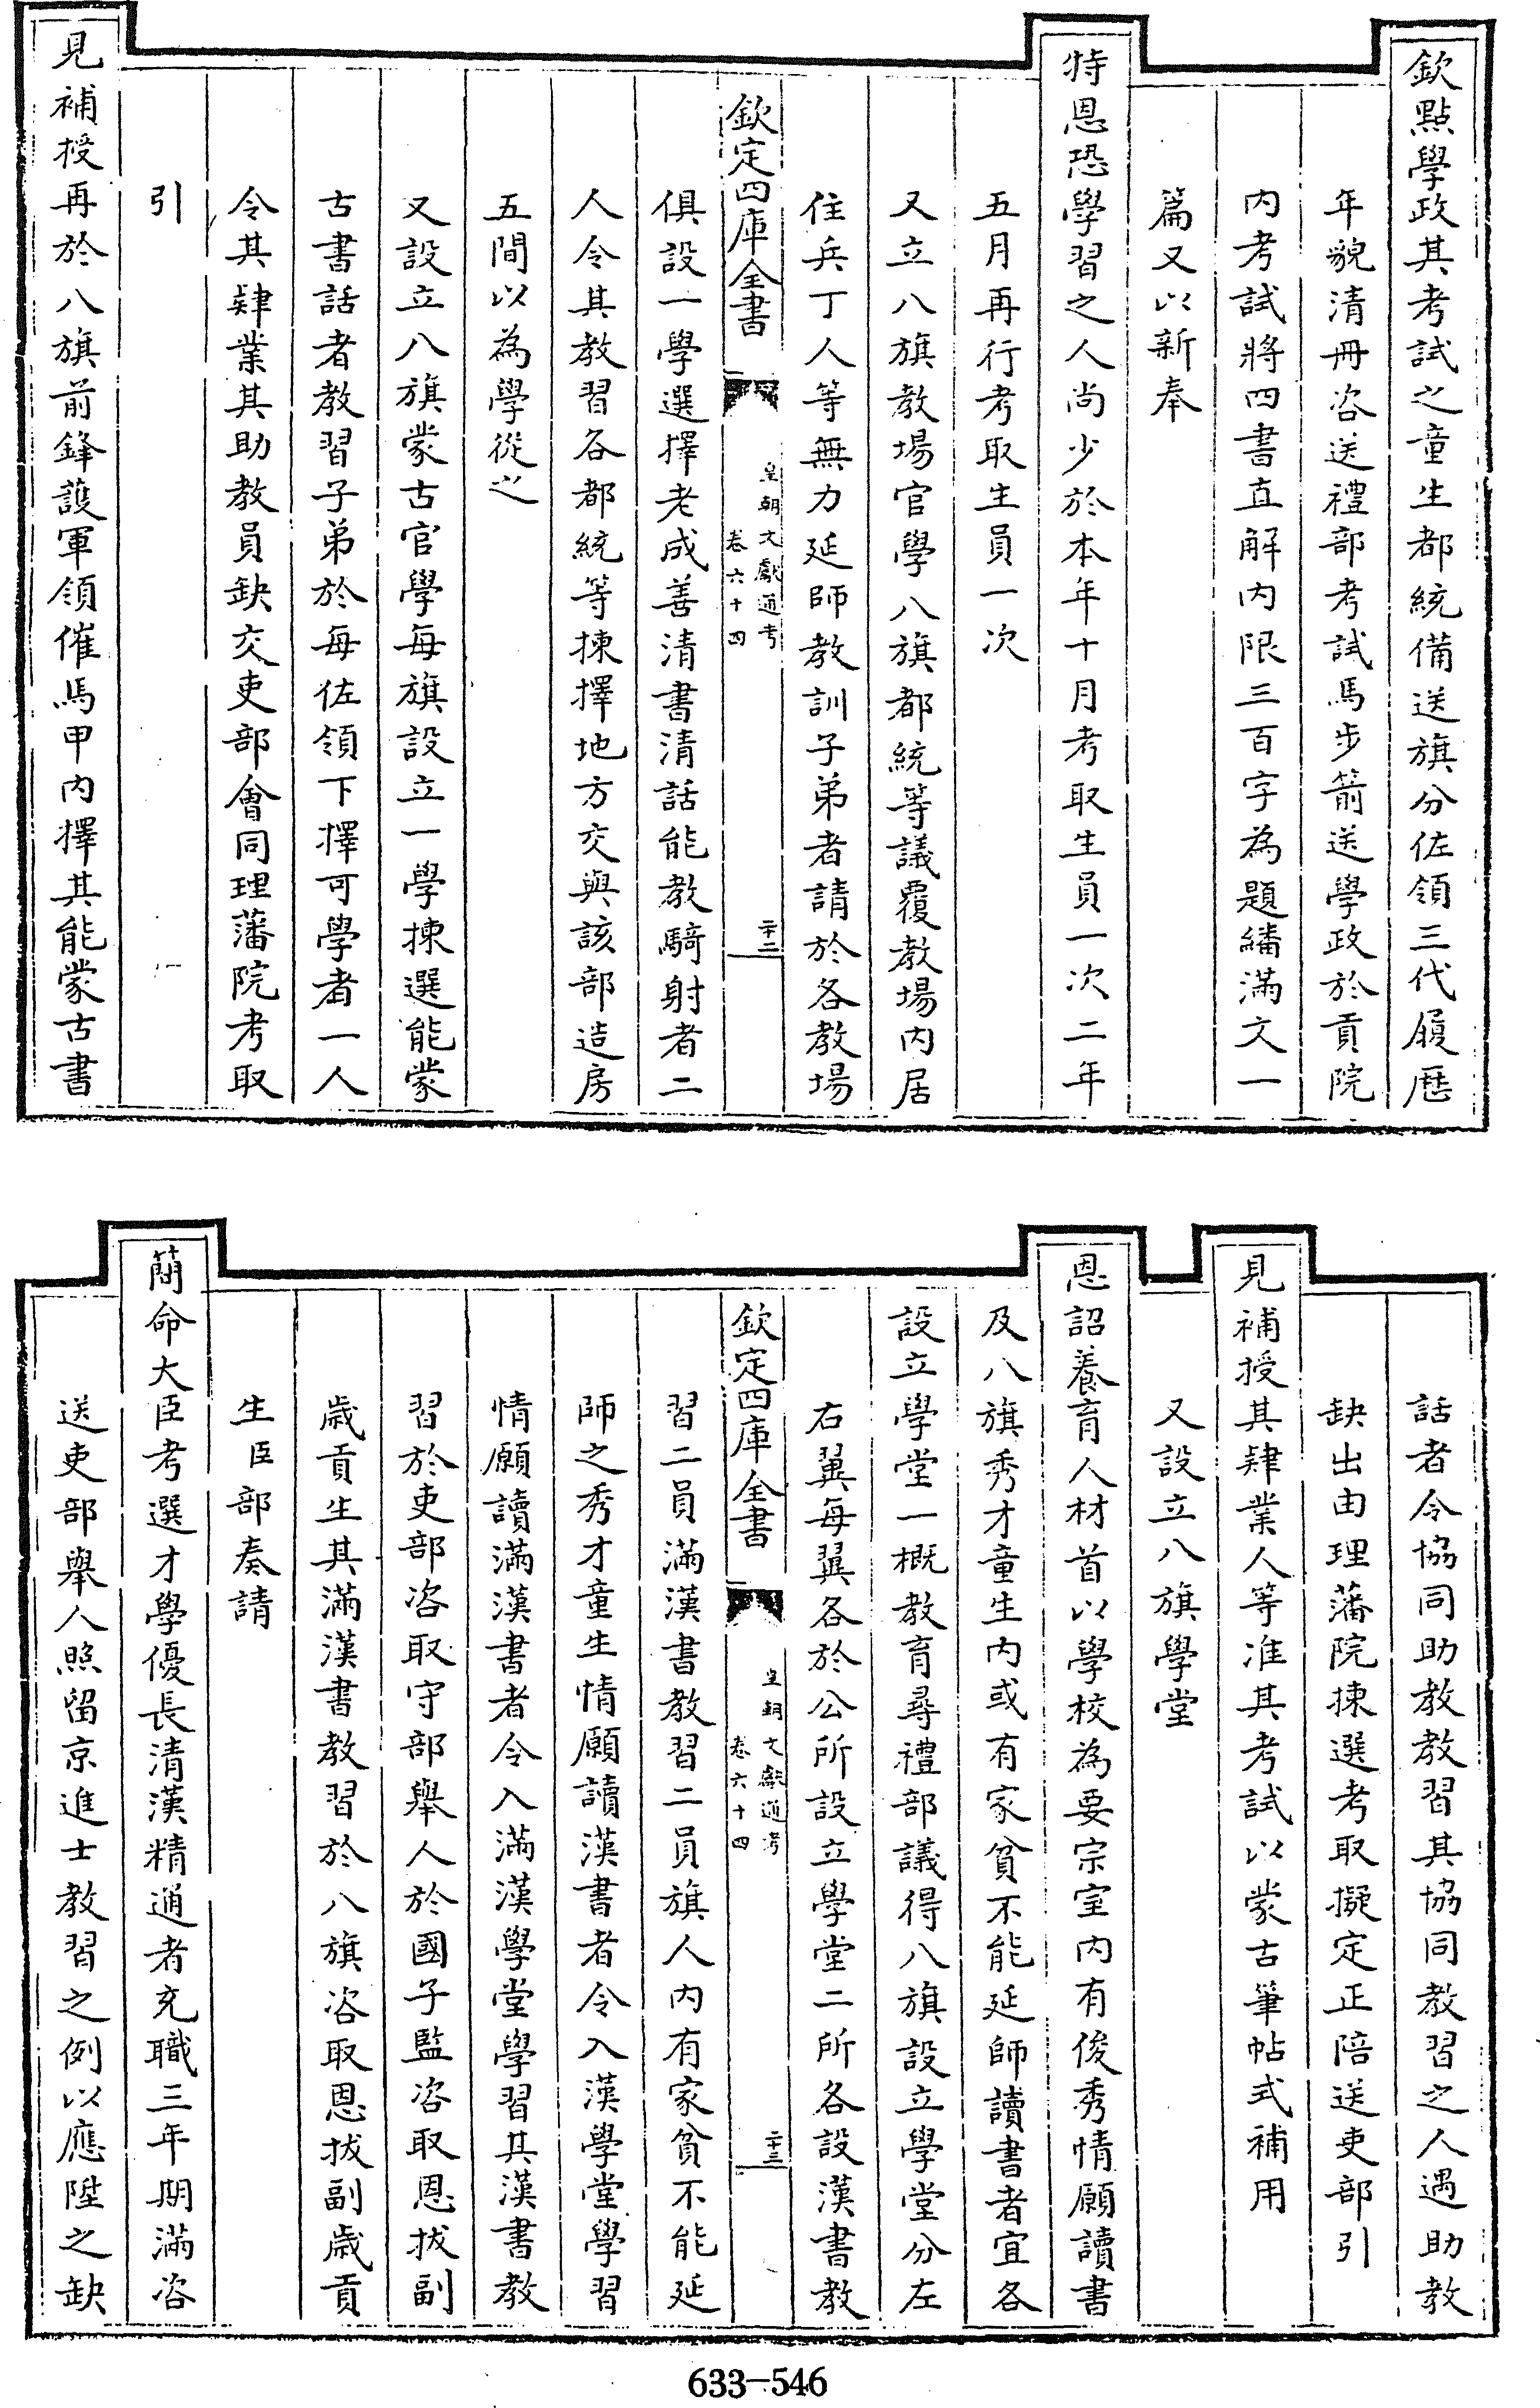 欽點學政其考試之童生都統備送旗分佐領三代履歷
年貌清冊咨送禮部考試馬步箭送學政於貢院
内考試將四書直解内限三百字為題繙滿文一
篇又以新奉
特恩恐學習之人尚少於本年十月考取生員一次二年
五月再行考取生員一次
又立八旗教場官學八旗都統等議覆教場内居
住兵丁人等無力延師教訓子弟者請於各教場
欽定四庫全書
皇朝文獻通考
卷六十四
二十二
俱設一學選擇老成善清書清話能教騎射者二
人令其教習各都統等揀擇地方交與該部造房
五間以為學從之
又設立八旗蒙古官學每旗設立一學揀選能蒙
古書話者教習子弟於每佐領下擇可學者一人
令其肄業其助教員缺交吏部會同理藩院考取
引
見補授再於八旗前鋒護軍領催馬甲内擇其能蒙古書
話者令協同助教教習其協同教習之人遇助教
缺出由理藩院揀選考取擬定正陪送吏部引
見補授其肄業人等准其考試以蒙古筆帖式補用
又設立八旗學堂
恩詔養育人材首以學校為要宗室内有俊秀情願讀書
及八旗秀才童生内或有家貧不能延師讀書者宜各
設立學堂一概教育尋禮部議得八旗設立學堂分左
右翼每翼各於公所設立學堂二所各設漢書教
欽定四庫全書
皇朝文獻通考
卷六十四
二十三
習二員滿漢書教習二員旗人内有家貧不能延
師之秀才童生情願讀漢書者令入漢學堂學習
情願讀滿漢書者令入滿漢學堂學習其漢書教
習於吏部咨取守部舉人於國子監咨取恩拔副
歲貢生其滿漢書教習於八旗咨取恩拔副歲貢
生臣部奏請
簡命大臣考選才學優長清漢精通者充職三年期滿咨
送吏部舉人照留京進士教習之例以應陞之缺
633-546